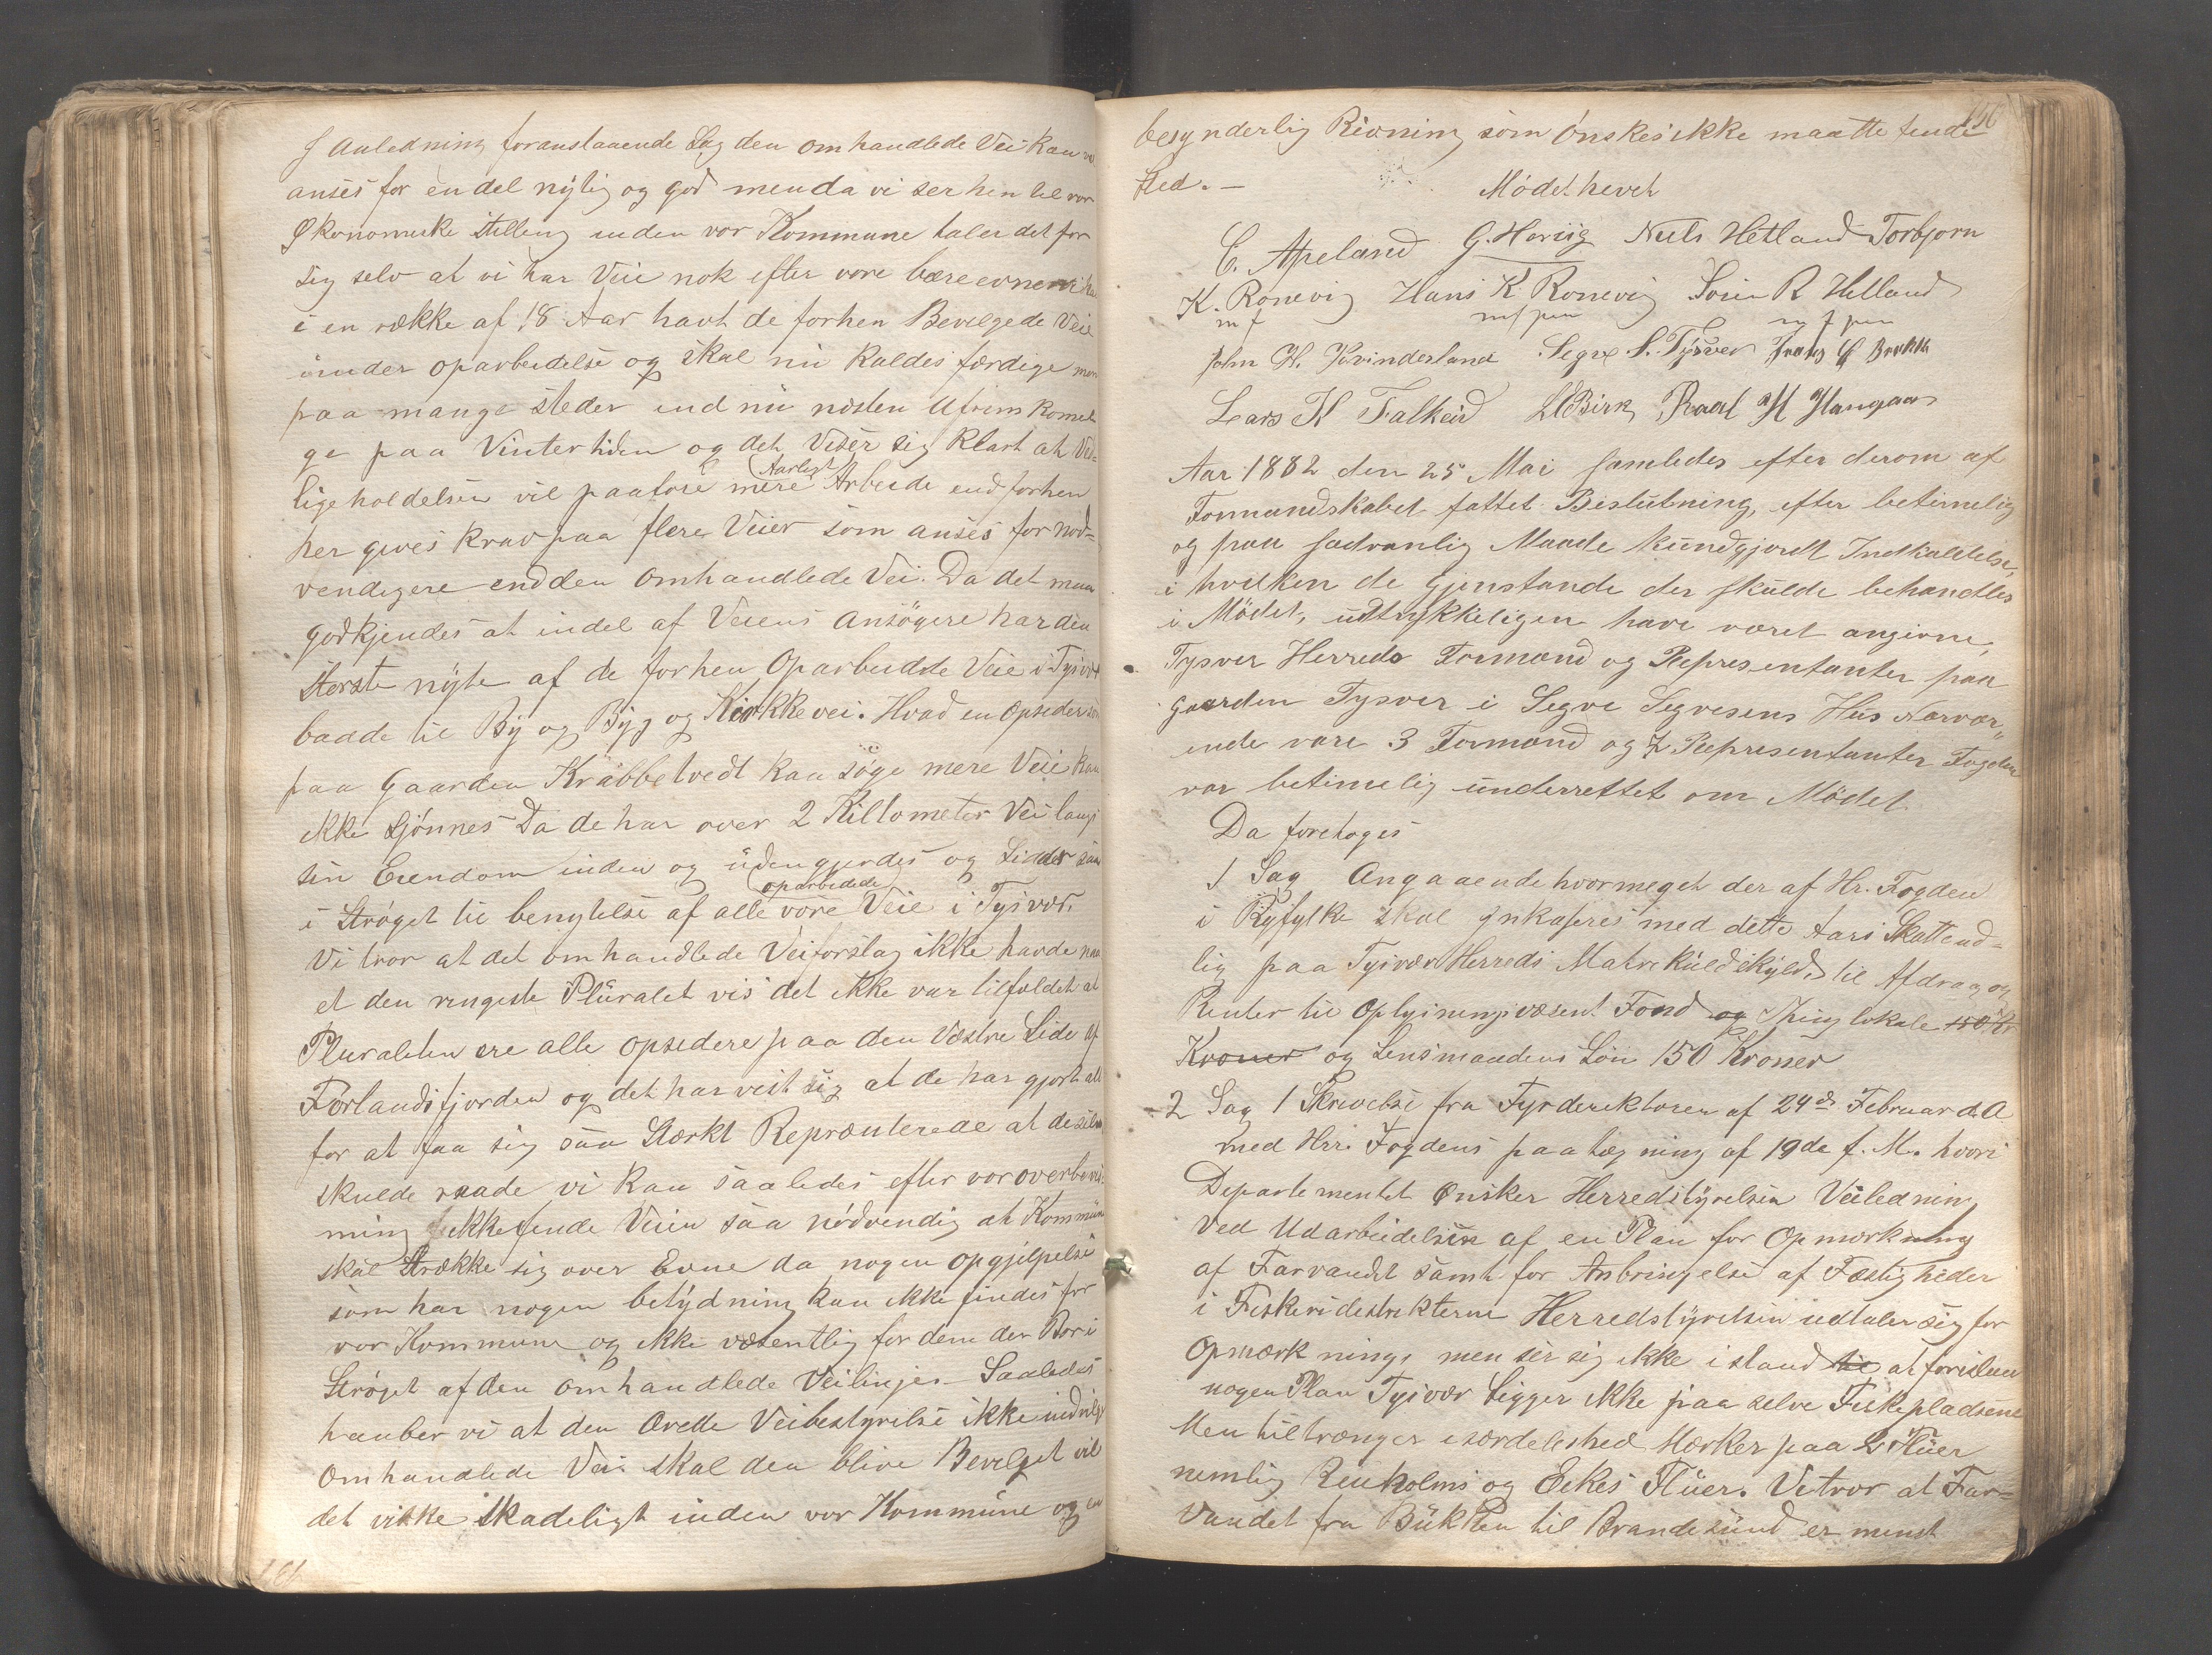 I Anledning foranstaaende Sag den omhandlede Vei kan vel
anses for endel nÿtig og god men da vi ser hen til vor
Økonomiske stilling inden vor Kommune taler det for
sig selv at vi har Veie nok efter vore bæreevne vi har
i en række af 18 Aar havt de forhen Bevilgede Veie
under oparbeidelse og skal nu kaldes færdige men
paa mange steder end nu næsten Ufremkomeli
ge paa Vintertiden og det Viser sig klart at Ved-
ligeholdelsen vil paaføre mere Aarligt Arbeide end forhen
her gives krav paa flere Veier som anses for nød-
vendigere end den omhandlede Vei. Da det maa
godkjendes at endel af Veiens ansøgere har den
Største nÿtte af de forhen Oparbeidde Veie i Tysvær
baade til Bÿ og Bÿgd og Kirkkevei. Hvad en opsidder som
paa Gaarden Krabbetvedt kan søge mere Veie kan
ikke skjønnes Da de har over 2 Killometer Vei langs
sin Eiendom inden og udengjerdes og Sidder saa
i Strøget til benyttelse af alle vore oparbedede Veie i Tysvær.
Vi tror at det omhandlede Veiforslag ikke havde naa
et den ringeste Pluralet vis det ikke var tilfeldet at
Pluraliteten ere alle opsidere paa den Væstre Side af
Førlandsfjorden og det har vist sig at de har gjort alt
for at faa sig saa Stærkt Repræenterede at de selv
skulde raade vi kan saaledes efter vor overbevis
ning ikke finde Veien saa nødvendig at Kommune
skal Strække sig over Evne da nogen opgjelpelse
som har nogen betÿdning kan ikke findes for
vor Kommune og ikke væsentlig for dem der Bor i
Strøget af den omhandlede Veilinjer – Saaledes
haaber vi at den Ærede Veibestyrelse ikke indvilger
omhandlede Vei. skal den blive Bevilget vil
det virkke skadeligt inden vor Kommune og en
181
156
besynderlig Rivning som Ønskes ikke maatte finde
Sted. –
Mødet hevet
C. Apeland G. Hervig Niels Hetland Torbjørn
K. Rønevig Hans K Rønevig Soren R Helland
m f m f pen m f pen
John H. Kvinnesland Segve S. Tysver
Lars H Falkeid L Birk Poul H Haugaas
Aar 1882 den 25 Mai samledes efter derom af
Formandskabet fattet Beslutning, efter betimelig
og paa sædvanlig Maade kundgjordt Indkaldelse,
i hvilken de Gjenstande der skulde behandles
i Mødet, udtrykkeligen have været angivne,
Tysver Herreds Formænd og Repræsentanter paa
Gaarden Tysver i Segve Segvesens Hus Nærvær„
ende vare 3 Formænd og 7 Representanter Fogden
var betimelig underrettet om Mødet
Da foretoges
1 Sag Angaaende hvormeget der af Hr. Fogden
i Ryfylke skal Inkaseres med dette Aars Skattend-
lig paa Tysvær Herreds Matrikuldskyld, til Afdrag og
Renter til Oplysningsvæsent Fond og Thinglokale 150 Kr
Kroner og Lensmandens Løn 150 Kroner
2 Sag 1 Skrivelse fra Fyrderektoren af 24de Februar d.A.
med Hrr. Fogdens paategning af 19de f. M. hvori
Departementet Ønsker Herredstÿrelsen Veiledning
ved Udarbeidelsen af en Plan for Opmærkning
af Farvandet samt for Anbringelse af Fæstigheder
i Fiskeridestrekterne Herredstÿrelsen udtaler sig for
Opmærkning, men ser sig ikke i stand til at foreslaa
nogen Plan Tysvær Ligger ikke paa selve Fiskepladsene
Men tiltrænger isærdeleshed Mærker paa 2 Flüer
nemlig Renholms og Eekes Flüer. Vi tror at Far-
vandet fra Bükken til Brandesund er minst